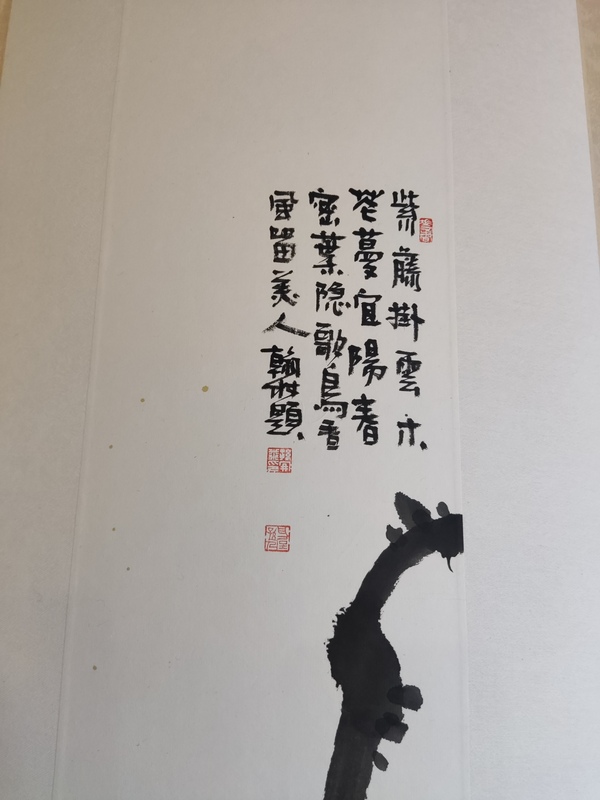 紫藤掛雲木
花蔓宜陽春
密葉隐歌鳥香
風留美人翰題